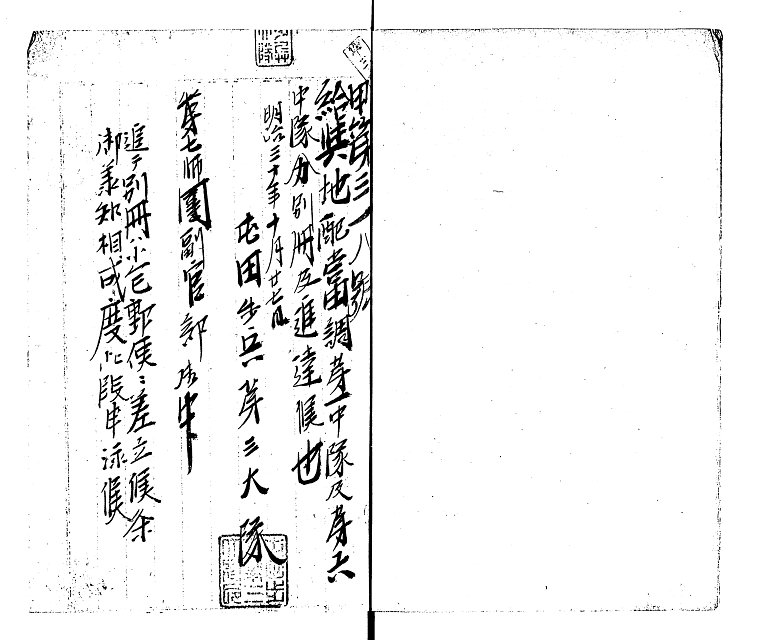 甲第三一八號
給與地配當調第一中隊及第六
中隊分別冊及進達候也
明治三十年十月廿七日
屯田歩兵第三大隊
第七師團副官部御中
進テ別冊ハ小包郵便ニ差立候条
御承知相成度此段申添候